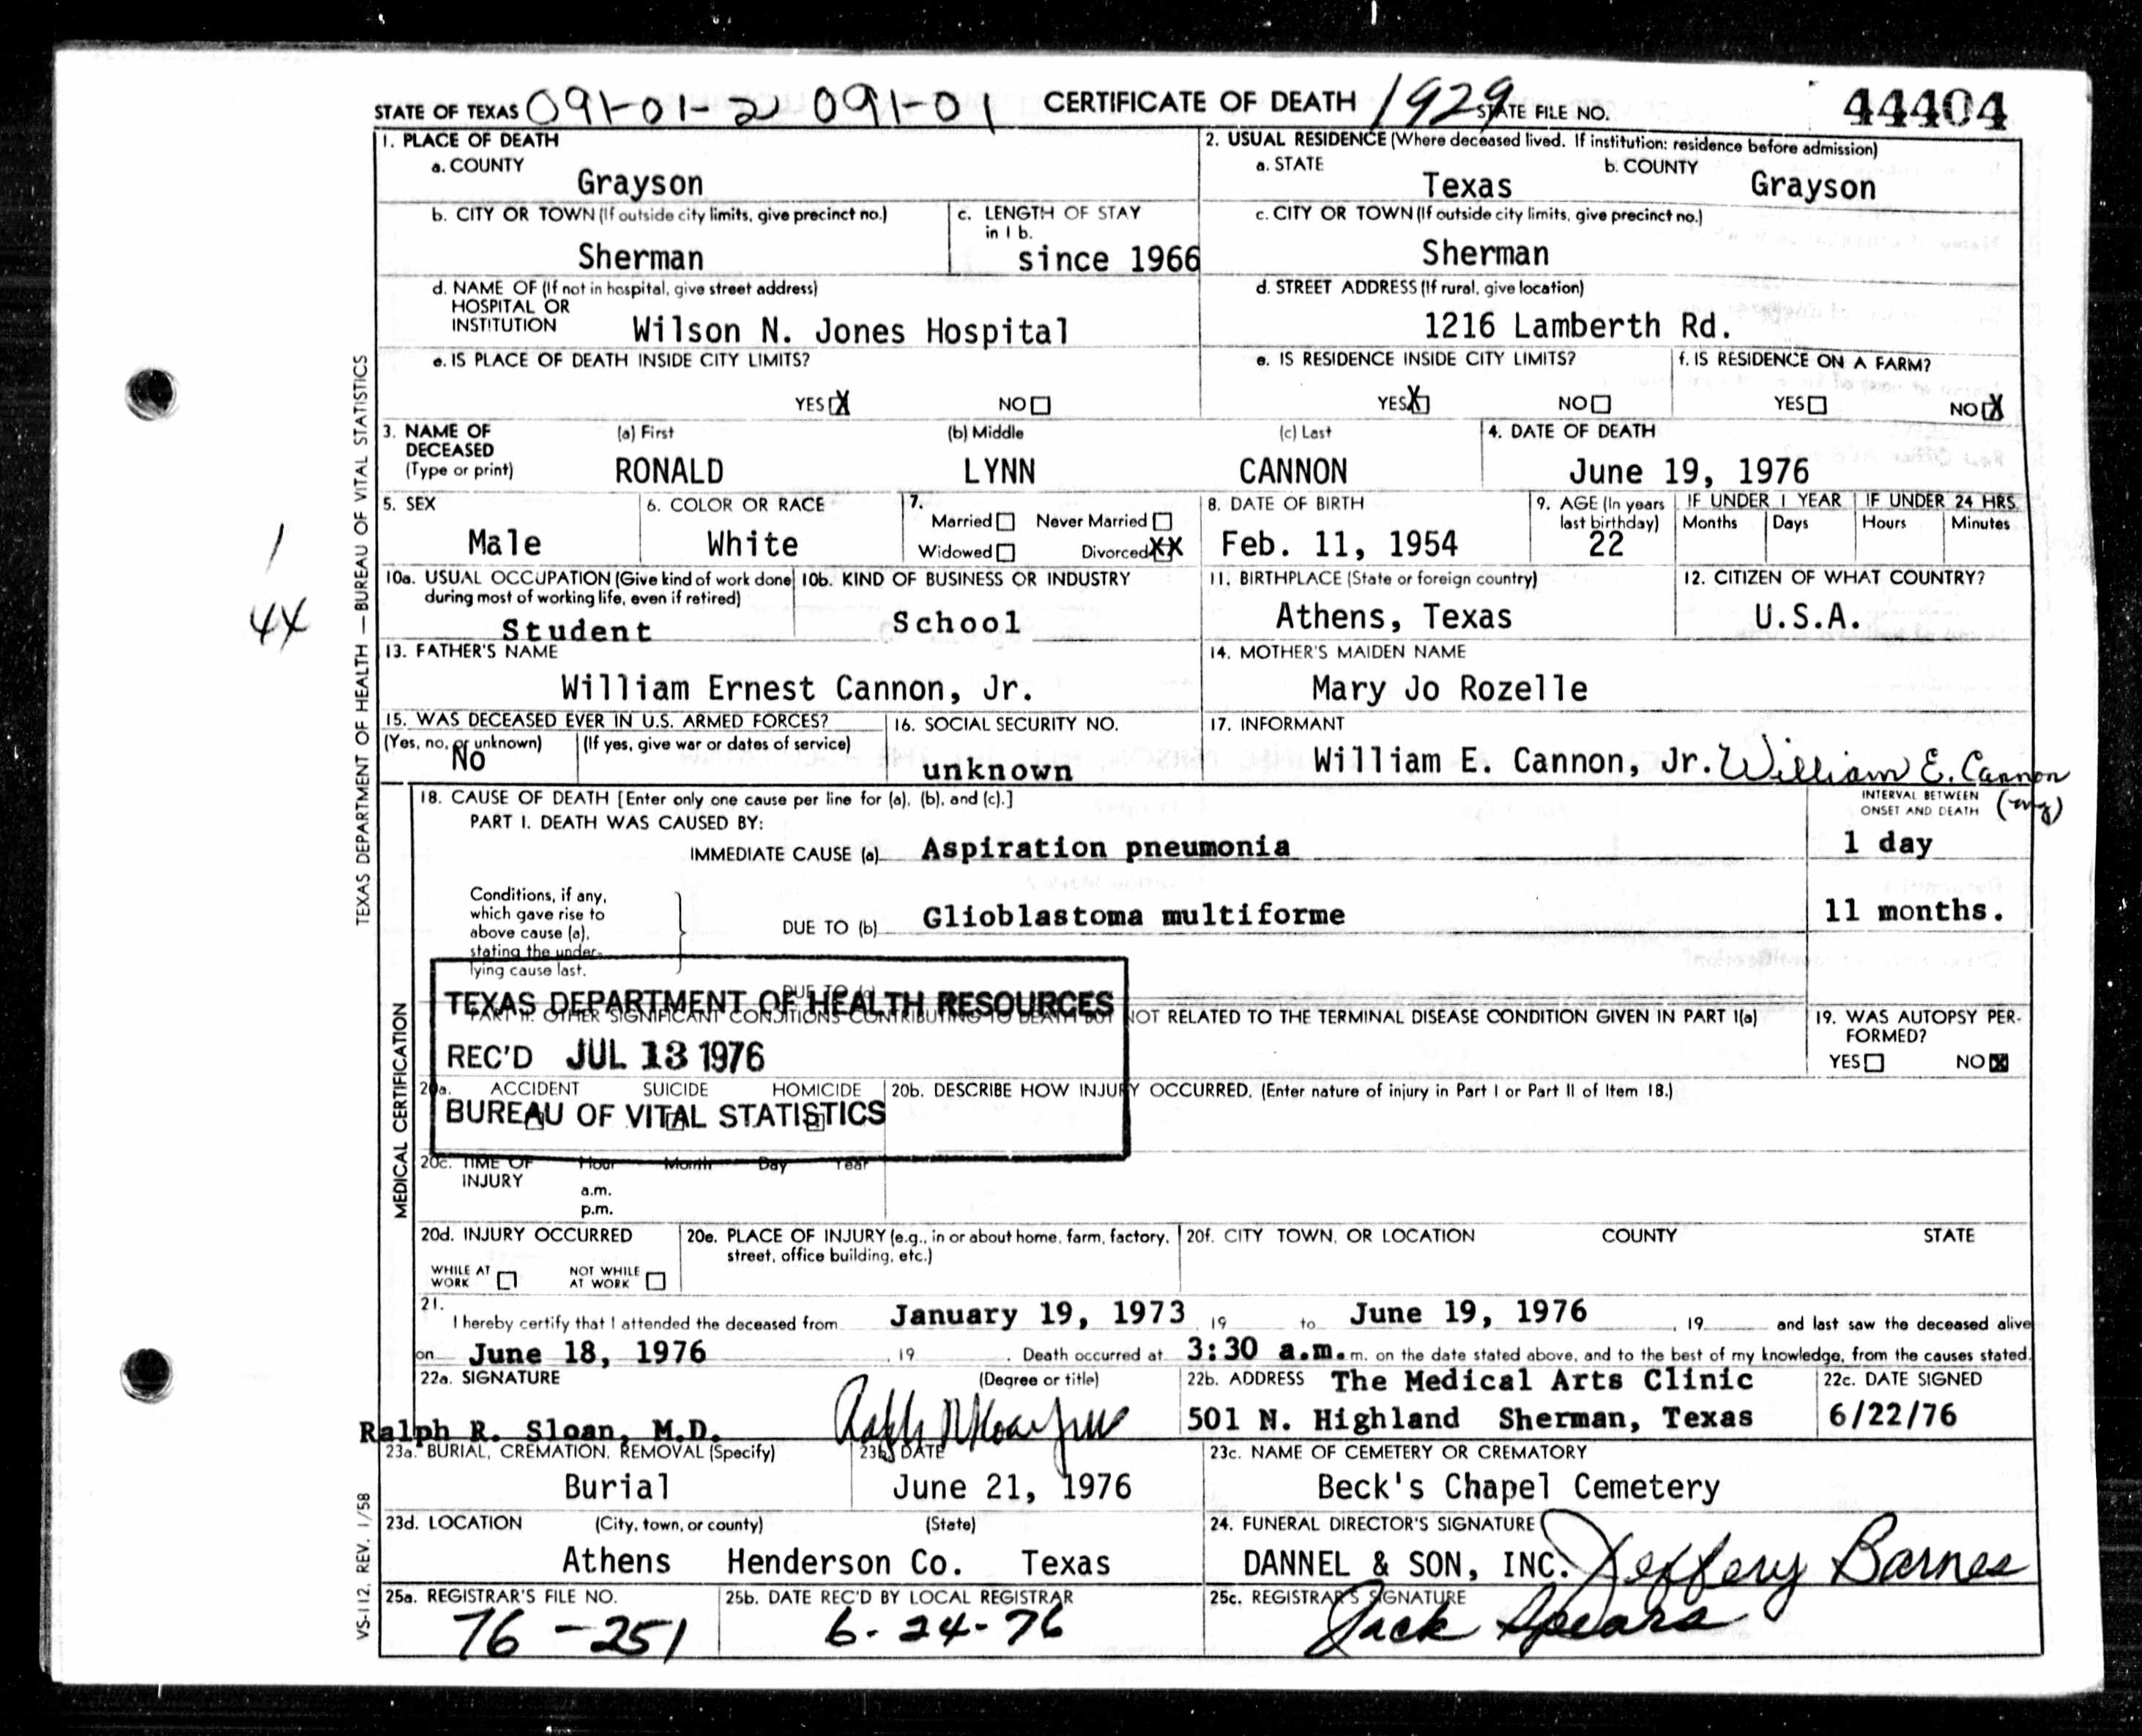 STATE OF TEXAS 091-01-2 091-01 CERTIFICATE OF DEATH 1929 STATE FILE NO. 44404
1. PLACE OF DEATH
a. COUNTY
Grayson
2. USUAL RESIDENCE (Where deceased lived. If institution: residence before admission)
a. STATE
Texas
b. COUNTY
Grayson
b. CITY OR TOWN (If outside city limits, give precinct no.)
Sherman
c. LENGTH OF STAY
in 1 b.
since 1966
c. CITY OR TOWN (If outside city limits, give precinct no.)
Sherman
d. NAME OF (If not in hospital, give street address)
HOSPITAL OR
INSTITUTION
Wilson N. Jones Hospital
d. STREET ADDRESS (If rural, give location)
1216 Lamberth Rd.
e. IS PLACE OF DEATH INSIDE CITY LIMITS?
YES X NO
e. IS RESIDENCE INSIDE CITY LIMITS?
YES X NO
f. IS RESIDENCE ON A FARM?
YES NO X
3. NAME OF
DECEASED
(Type or print)
(a) First
RONALD
(b) Middle
LYNN
(c) Last
CANNON
4. DATE OF DEATH
June 19, 1976
5. SEX
Male
6. COLOR OR RACE
White
7.
Married Never Married
Widowed Divorced XX
8. DATE OF BIRTH
Feb. 11, 1954
9. AGE (In years
last birthday)
22
IF UNDER 1 YEAR
Months Days
IF UNDER 24 HRS.
Hours Minutes
10a. USUAL OCCUPATION (Give kind of work done
during most of working life, even if retired)
Student
10b. KIND OF BUSINESS OR INDUSTRY
School
11. BIRTHPLACE (State or foreign country)
Athens, Texas
12. CITIZEN OF WHAT COUNTRY?
U.S.A.
13. FATHER'S NAME
William Ernest Cannon, Jr.
14. MOTHER'S MAIDEN NAME
Mary Jo Rozelle
15. WAS DECEASED EVER IN U.S. ARMED FORCES?
(Yes, no, or unknown) (If yes, give war or dates of service)
No
16. SOCIAL SECURITY NO.
unknown
17. INFORMANT
William E. Cannon, Jr. William E. Cannon
18. CAUSE OF DEATH [Enter only one cause per line for (a), (b), and (c).]
INTERVAL BETWEEN
ONSET AND DEATH
PART I. DEATH WAS CAUSED BY:
IMMEDIATE CAUSE (a) Aspiration pneumonia 1 day
Conditions, if any,
which gave rise to
above cause (a),
stating the under-
lying cause last.
DUE TO (b) Glioblastoma multiforme 11 months.
DUE TO (c)
PART II. OTHER SIGNIFICANT CONDITIONS CONTRIBUTING TO DEATH BUT NOT RELATED TO THE TERMINAL DISEASE CONDITION GIVEN IN PART I(a)
TEXAS DEPARTMENT OF HEALTH RESOURCES
REC'D JUL 13 1976
BUREAU OF VITAL STATISTICS
19. WAS AUTOPSY PER-
FORMED?
YES NO X
20a. ACCIDENT SUICIDE HOMICIDE
20b. DESCRIBE HOW INJURY OCCURRED. (Enter nature of injury in Part I or Part II of Item 18.)
20c. TIME OF
INJURY
Hour Month Day Year
a.m.
p.m.
20d. INJURY OCCURRED
WHILE AT
WORK
NOT WHILE
AT WORK
20e. PLACE OF INJURY (e.g., in or about home, farm, factory,
street, office building, etc.)
20f. CITY TOWN, OR LOCATION COUNTY STATE
21.
I hereby certify that I attended the deceased from January 19, 1973, 19 to June 19, 1976, 19 and last saw the deceased alive
on June 18, 1976, 19. Death occurred at 3:30 a.m. m. on the date stated above, and to the best of my knowledge, from the causes stated.
22a. SIGNATURE (Degree or title)
Ralph R. Sloan, M.D.
22b. ADDRESS The Medical Arts Clinic
501 N. Highland Sherman, Texas
22c. DATE SIGNED
6/22/76
23a. BURIAL, CREMATION, REMOVAL (Specify)
Burial
23b. DATE
June 21, 1976
23c. NAME OF CEMETERY OR CREMATORY
Beck's Chapel Cemetery
23d. LOCATION (City, town, or county) (State)
Athens Henderson Co. Texas
24. FUNERAL DIRECTOR'S SIGNATURE
DANNEL & SON, INC. Jeffery Barnes
25a. REGISTRAR'S FILE NO.
76-251
25b. DATE REC'D BY LOCAL REGISTRAR
6-24-76
25c. REGISTRAR'S SIGNATURE
Jack Spears
TEXAS DEPARTMENT OF HEALTH — BUREAU OF VITAL STATISTICS
MEDICAL CERTIFICATION
VS-112. REV. 1/58
1
44